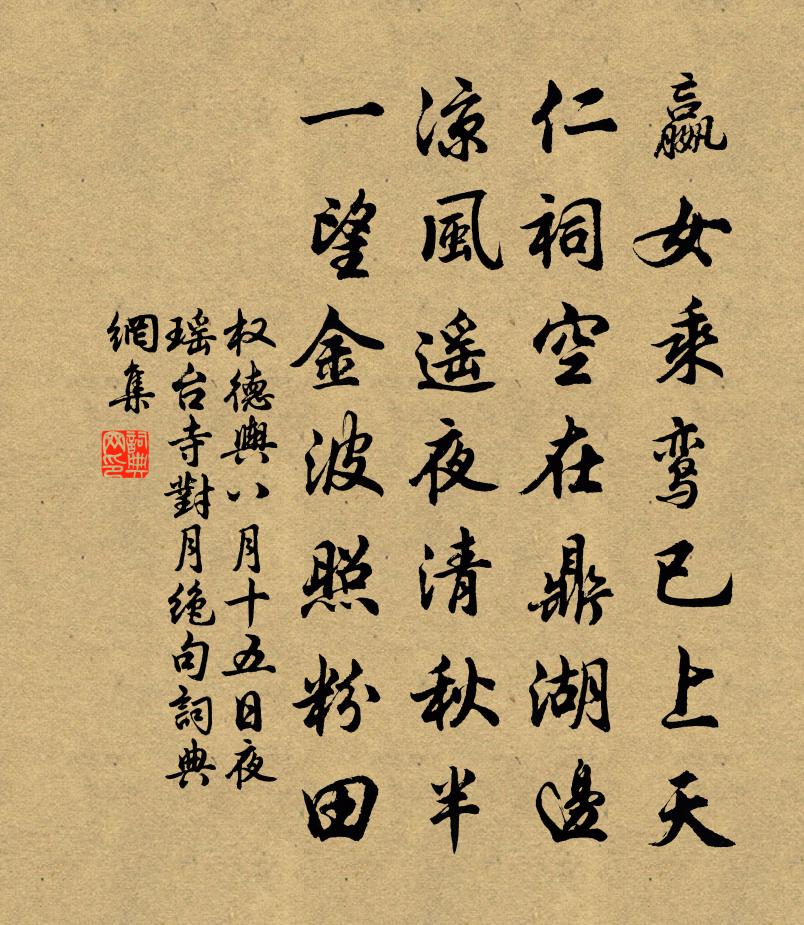 嬴女乘鸾已上天
仁祠空在鼎湖邊
凉風遥夜清秋半
一望金波照粉田
权德輿八月十五日夜
瑶台寺對月绝句詞典
網集
詞典网印